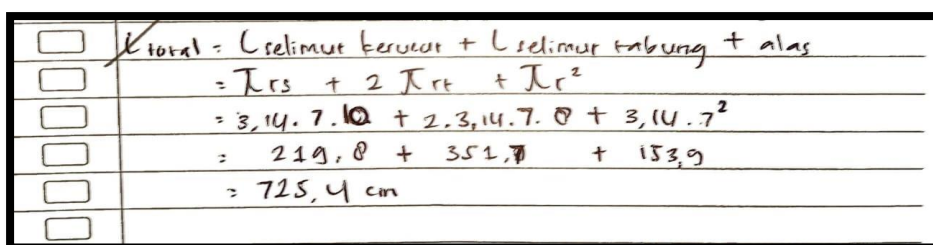 L total = L selimut kerucut + L selimut tabung + alas
= πrs + 2 πrt + πr²
= 3,14. 7. 10 + 2. 3,14. 7. 8 + 3,14. 7²
= 219,8 + 351,7 + 153,9
= 725,4 cm